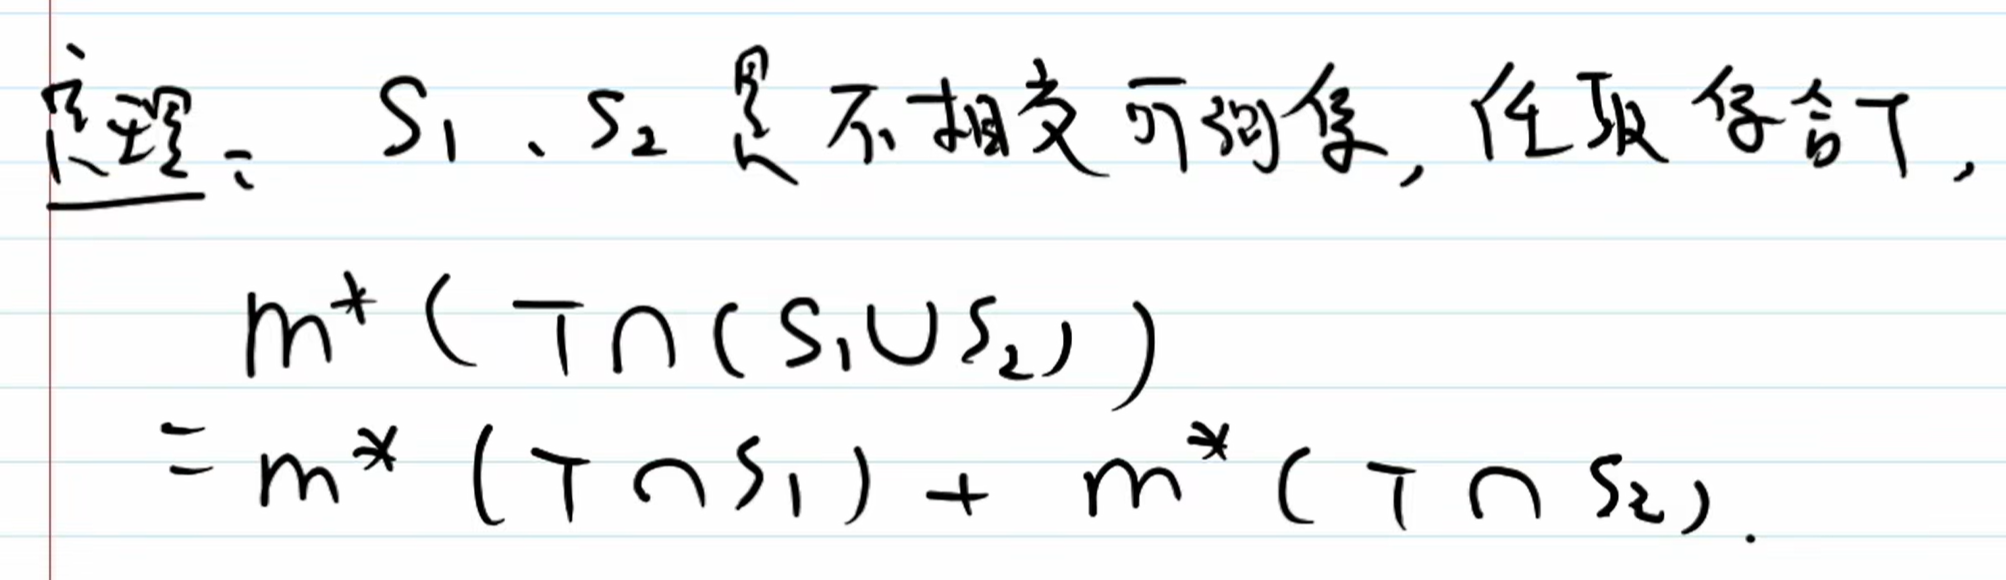 定理: S₁、S₂是不相交可测集,任取集合T,
m*(T∩(S₁∪S₂))
=m*(T∩S₁)+m*(T∩S₂).